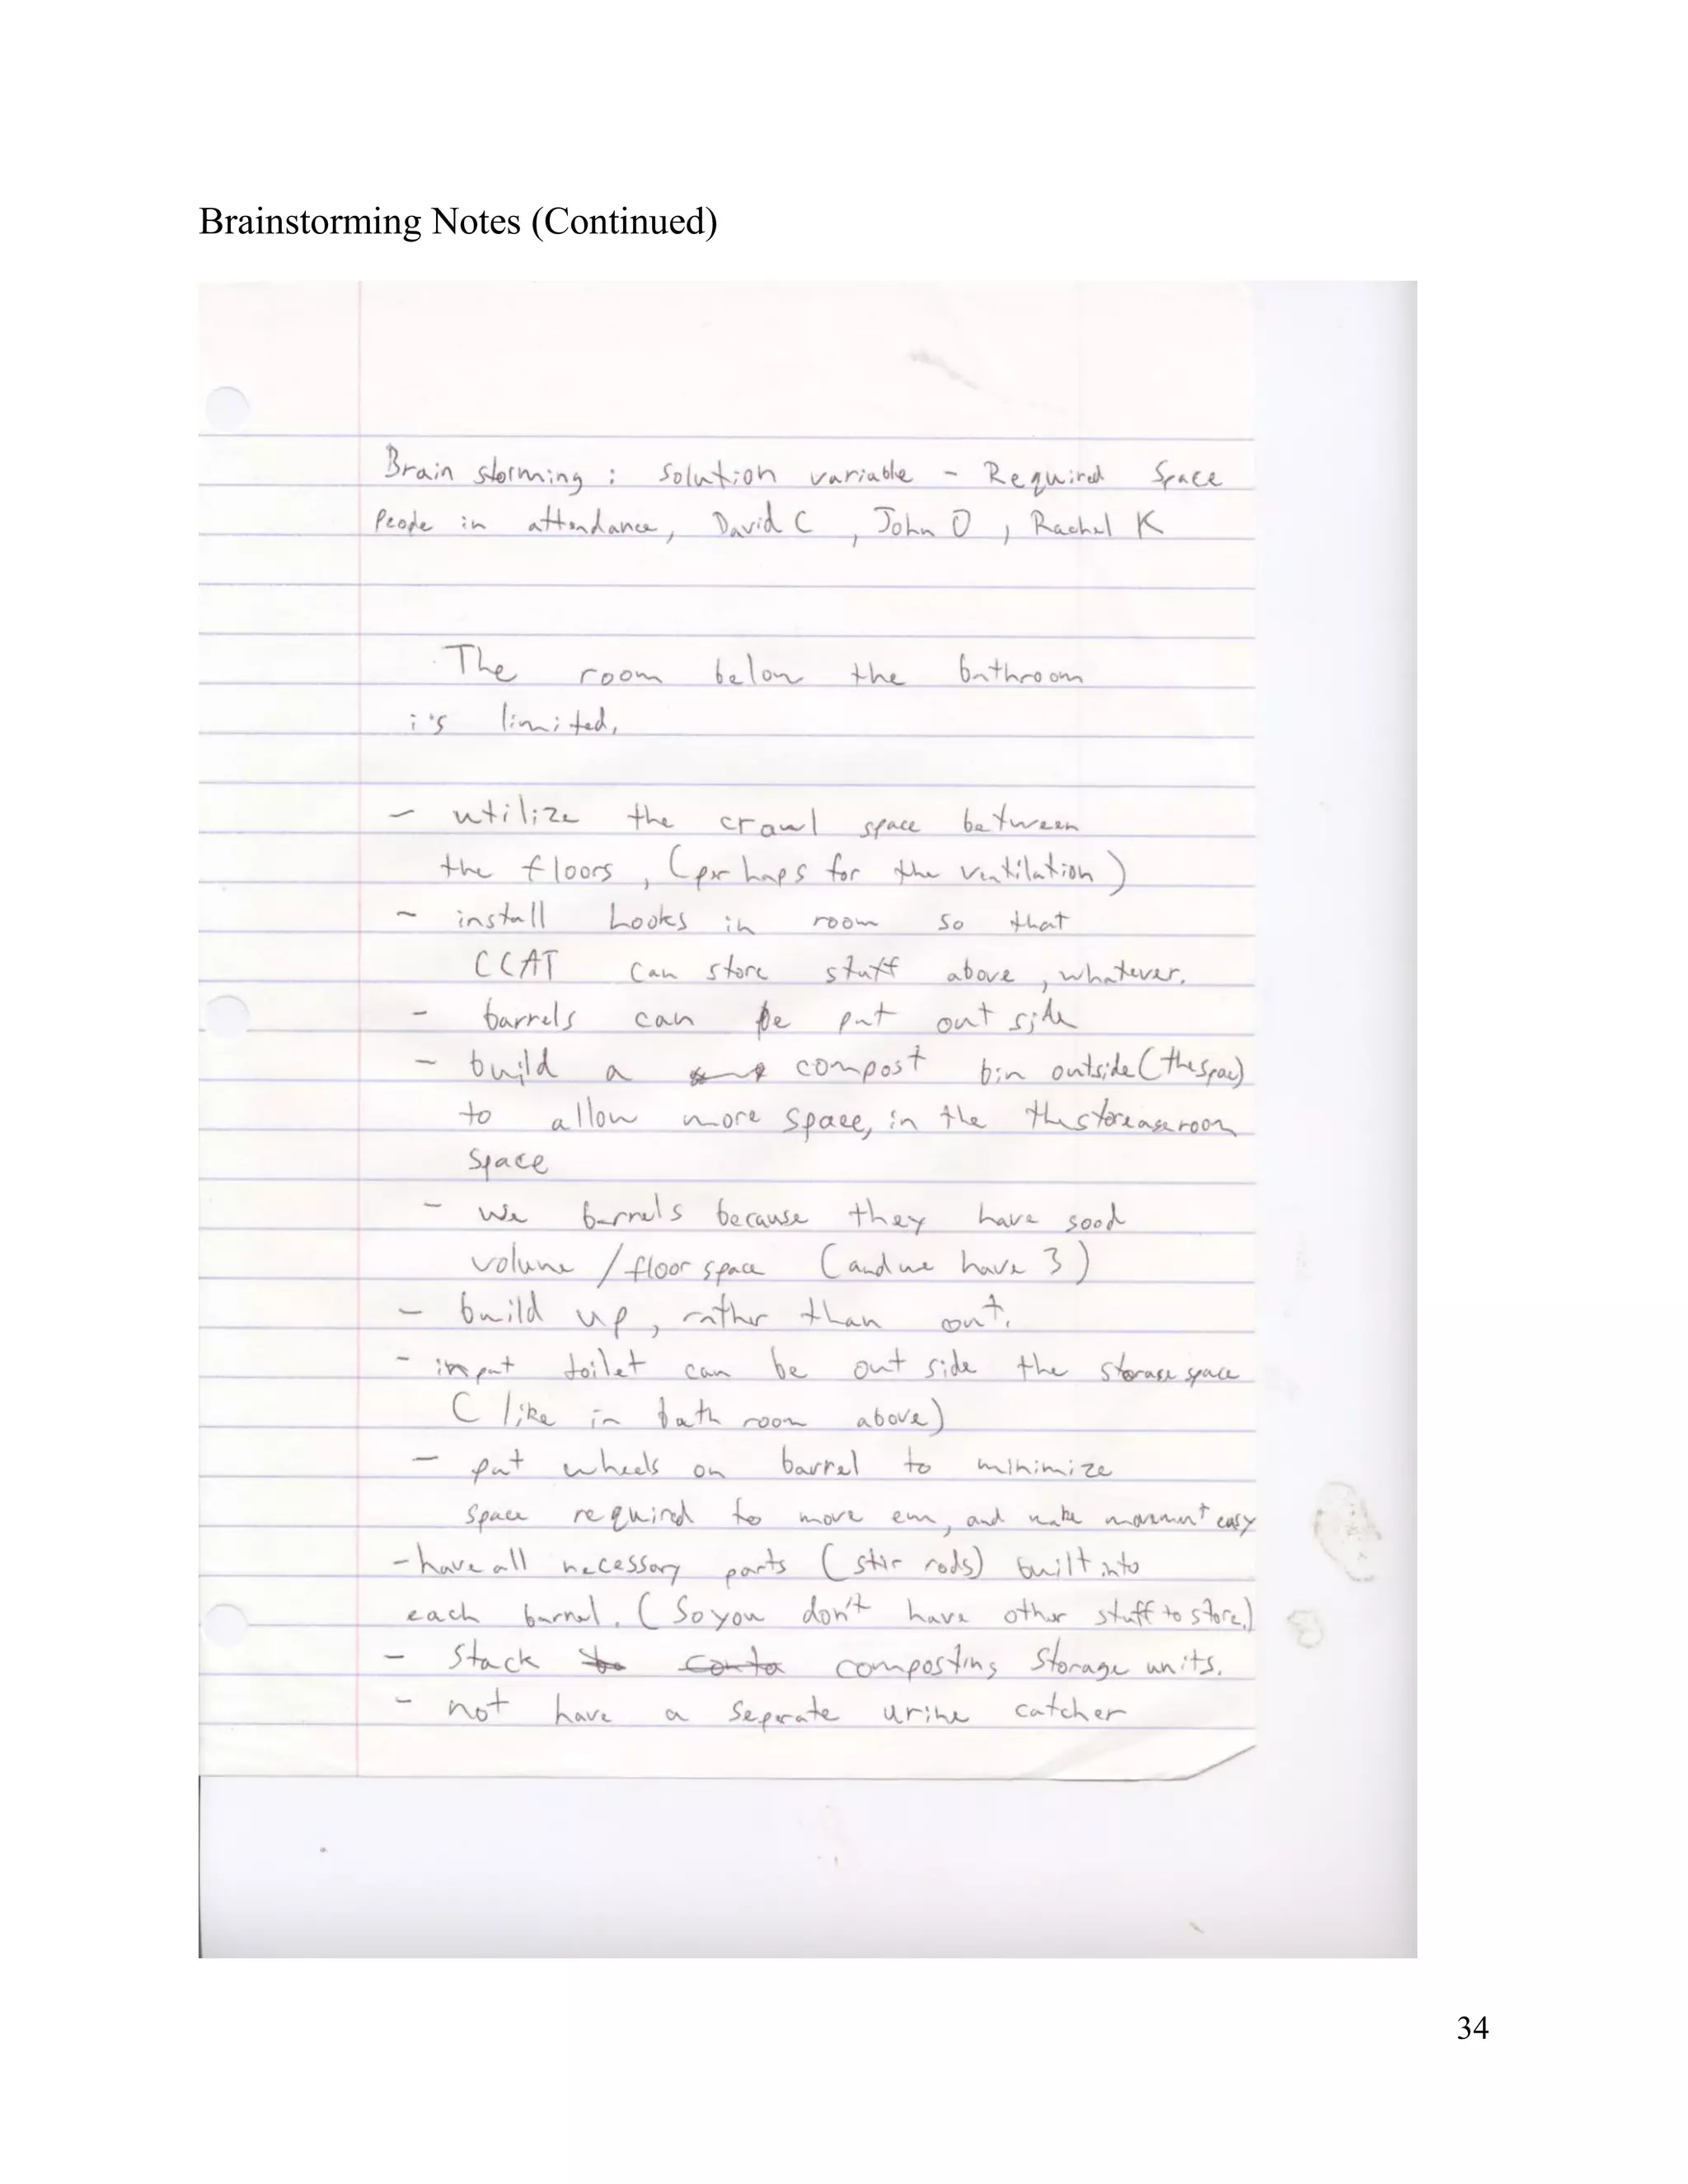 Brainstorming Notes (Continued)
Brain storming : Solution variable - Required Space
People in attendance, David C , John O , Rachel K
The room below the bathroom
is limited,
- utilize the crawl space between
the floors, (perhaps for the ventilation)
- install hooks in room so that
CCAT can store stuff above, whatever.
- barrels can be put out side
- build a compost bin outside (the space)
to allow more space, in the the storeage room
space
- barrels because they have good
volume / floor space (and we have 3)
- build up, rather than out.
- input toilet can be out side the storage space
( like in bath room above)
- put wheels on barrel to minimize
space required to move em, and make movement easy
- have all necessary parts ( stir rods) built into
each barrel. ( So you don't have other stuff to store.)
- Stack composting storage units.
- not have a seperate urine catcher
34